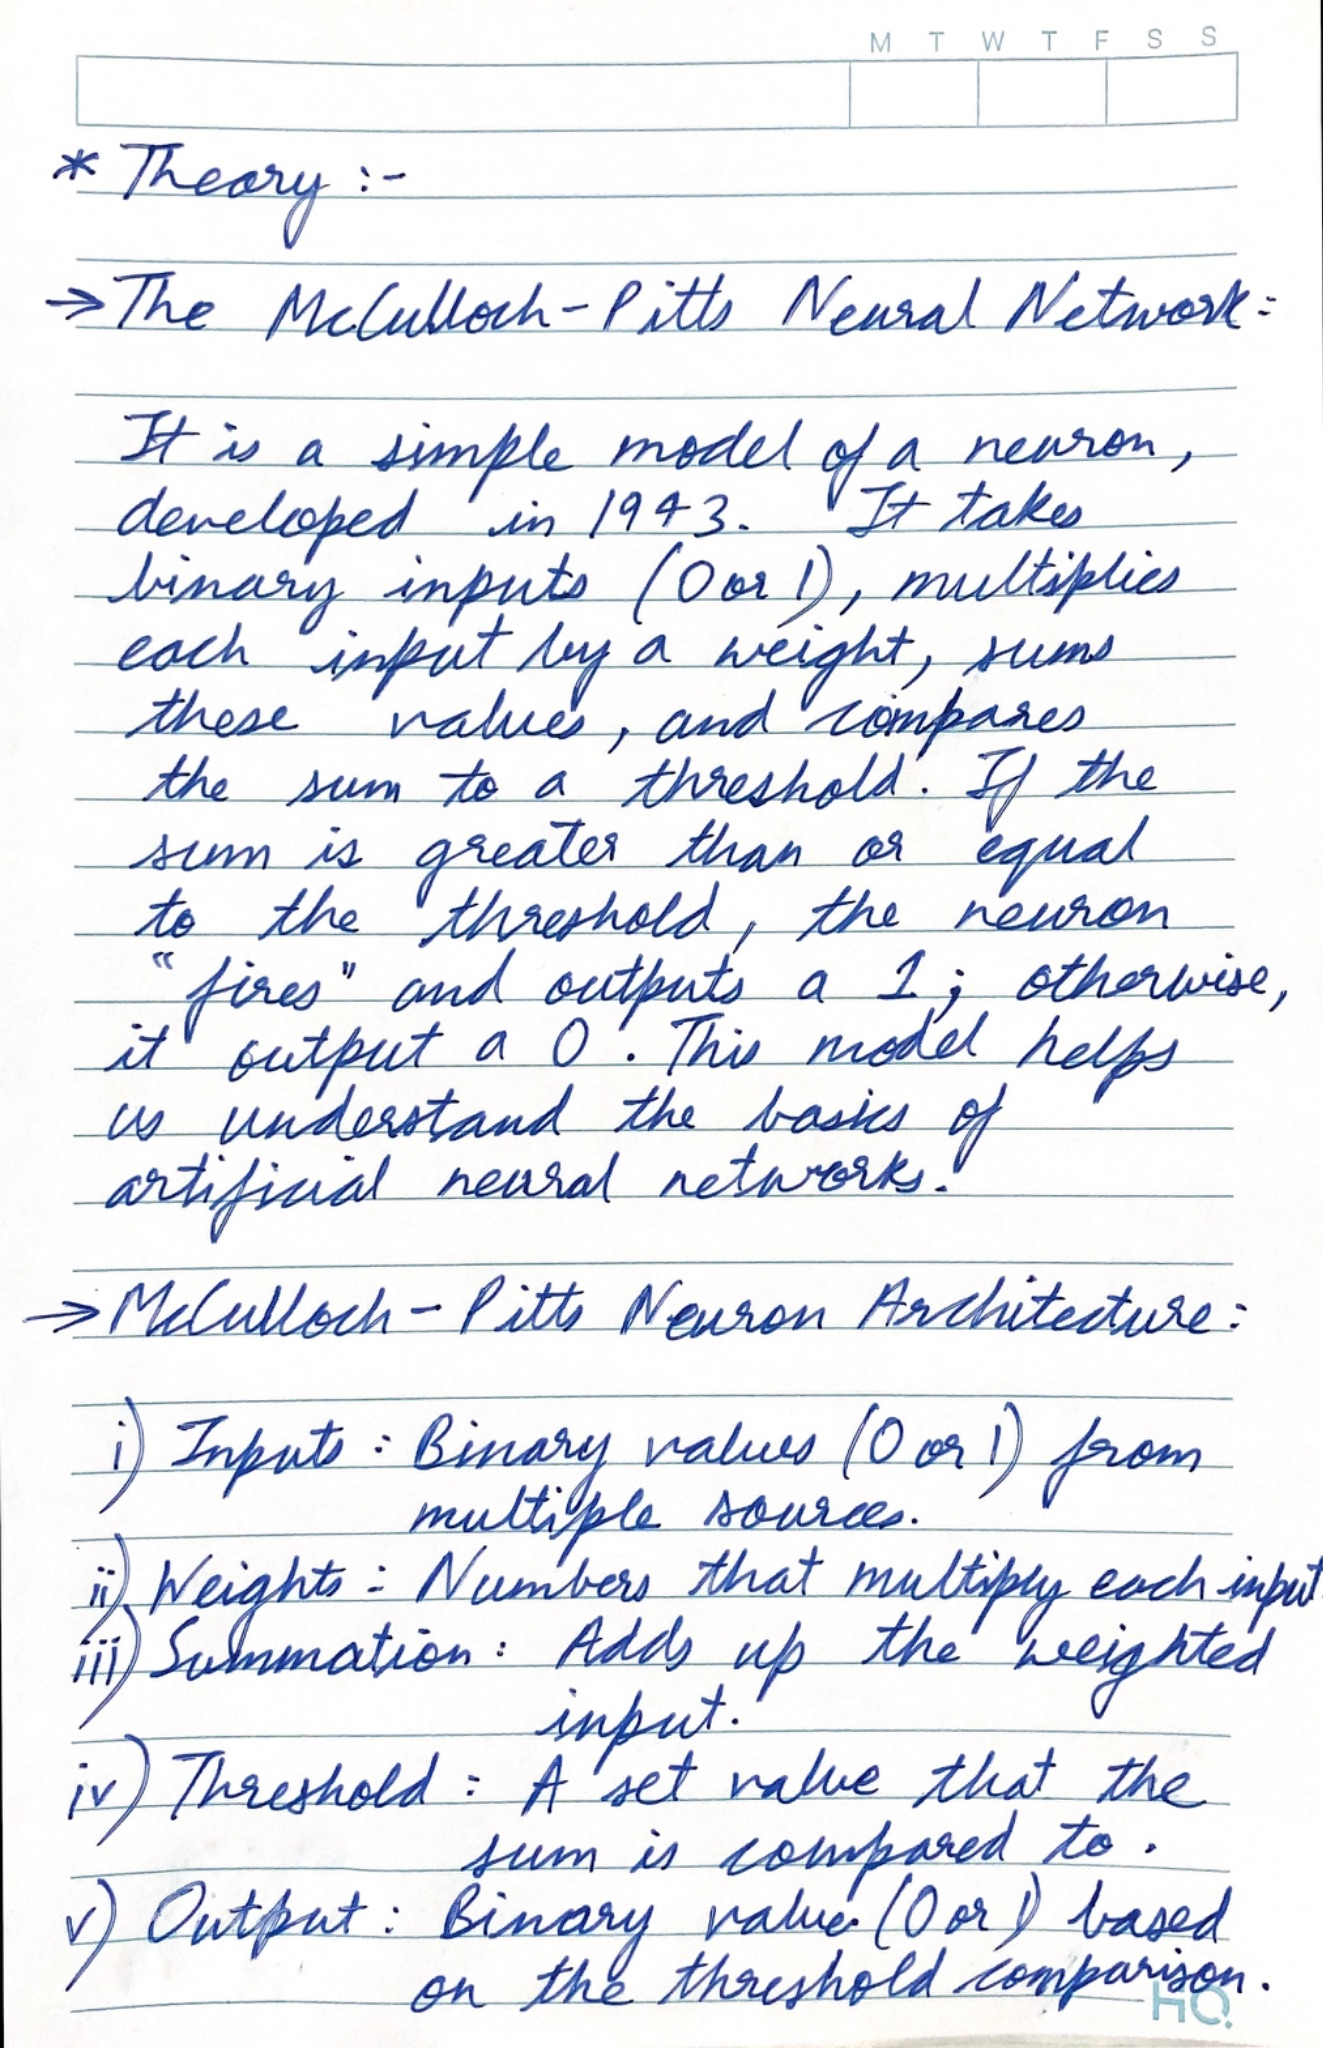 M T W T F S S
* Theory :-
→ The McCulloch-Pitts Neural Network:
It is a simple model of a neuron,
developed in 1943. It takes
binary inputs (0 or 1), multiplies
each input by a weight, sums
these values, and compares
the sum to a threshold. If the
sum is greater than or equal
to the threshold, the neuron
"fires" and outputs a 1; otherwise,
it output a 0. This model helps
us understand the basics of
artificial neural networks.
→ McCulloch-Pitts Neuron Architecture:
i) Inputs: Binary values (0 or 1) from
multiple sources.
ii) Weights: Numbers that multiply each input.
iii) Summation: Adds up the weighted
input.
iv) Threshold: A set value that the
sum is compared to.
v) Output: Binary value (0 or 1) based
on the threshold comparison.
HQ